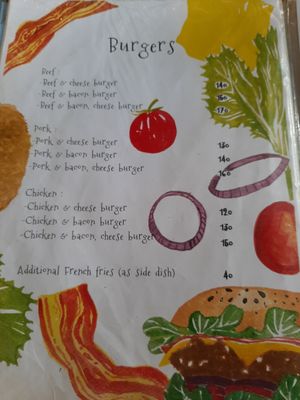 Burgers
Beef :
-Beef & cheese burger 140
-Beef & bacon burger 150
-Beef & bacon, cheese burger 170
Pork :
-Pork & cheese burger 130
-Pork & bacon burger 140
-Pork & bacon, cheese burger 160
Chicken :
-Chicken & cheese burger 120
-Chicken & bacon burger 130
-Chicken & bacon, cheese burger 150
Additional French fries (as side dish) 40